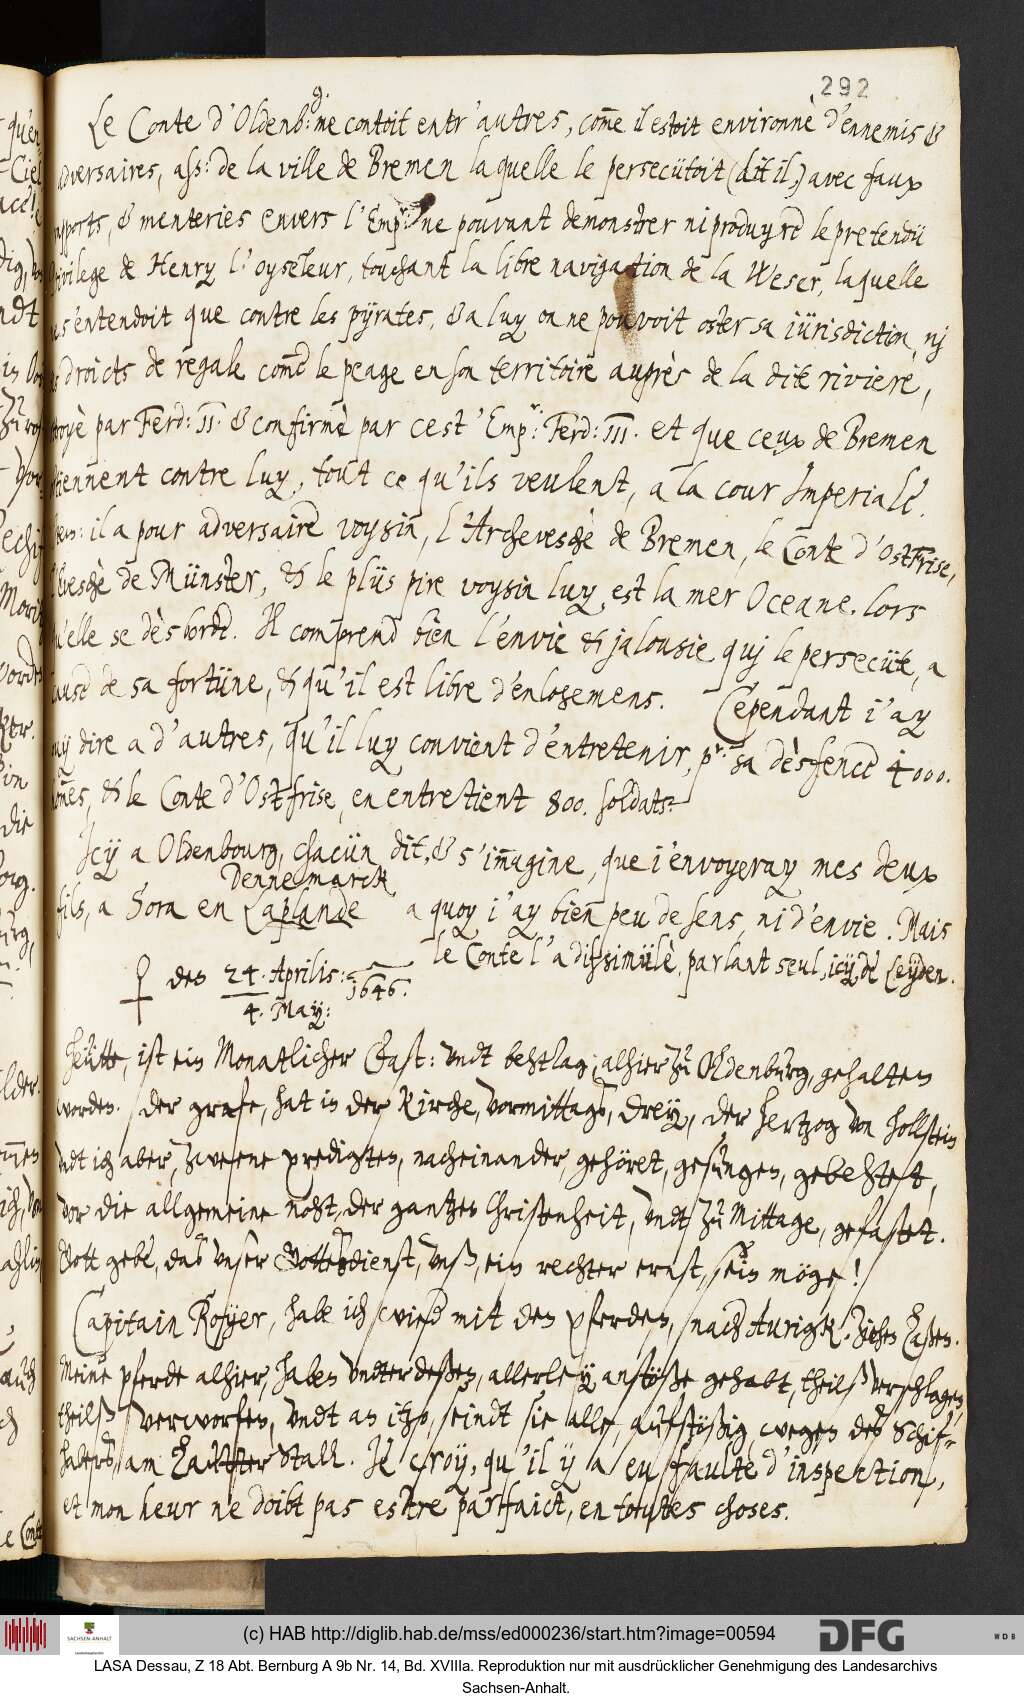 292
Le Conte d'Oldenb:g. me contoit entr'autres, com̃e il estoit environnè d'ennemis &
adversaires, ass: de la ville de Bremen laquelle le persecütoit (dit il,) avec faux
rapports, & menteries envers l'Emp:r ne pouvant demonstrer ni produyre le pretendü
privilege de Henry l'oyseleur, touchant la libre navigation de la Weser, laquelle
ne s'entendoit que contre les pÿrates, & a luy on ne pouvoit oster sa iürisdiction, nj
les droicts de regale com̃e le peage en son territoire auprès de la dite riviere,
ottroyè par Ferd: II. & confirmè par cest'Emp:r Ferd: III. et que ceux de Bremen
obtiennent contre luy, tout ce qu'ils veulent, a la cour Imperiale.
il a pour adversaire voysin, l'Archevesché de Bremen, le Conte d'OstFrise,
l'Evesché de Münster, & le plüs pire voysin luy est la mer Oceane. lors
qu'elle se dèsborde. Il comprend bien l'envie & jalousie quj le persecüte, a
cause de sa fortüne, & qu'il est libre d'enlogemens. Cependant i'ay
ouÿ dire a d'autres, qu'il luy convient d'entretenir, p:r sa dèsfence 4000.
hom̃es, & le Conte d'Ostfrise, en entretient 800. soldats.
Icÿ a Oldenbourg, chacün dit, & s'im̃agine, que i'envoyeray mes deux
Dennemarck
fils, a Sora en Laplande a quoy i'ay bien peu de sens, ni d'envie. Mais
le Conte l'a dissimülè, parlant seul, icÿ, de Leÿden.
♀ den 24. Aprilis: 1646.
4. May:
Heütte, ist ein Monatlicher Fast: vndt behtTag, alhier zu Oldenburg, gehalten
worden. der grafe, hat in der Kirche, vormittags, dreÿ, der Hertzog von Hollstein
vndt ich aber, zweene predigten, nacheinander, gehöret, gesungen, gebehtet,
vor die allgemeine noht, der gantzen Christenheit, vndt zu Mittage, gefastet.
Gott gebe, daß vnser Gottesdienst, vnß, ein rechter ernst, sein möge!
Capitain Royer, habe ich wied mit den pferden, nach Aurigk ziehen laßen.
Meine pferde alhier, haben vndterdeßen, allerleÿ anstöße gehabt, theilß verschlagen,
theilß verworfen, vndt an itzo, seindt sie alle, aufstößig, wegen des Schif-
halters, am Stall. Je croÿ, qu'il ÿ a eu faulte d'inspection,
et mon heur ne doibt pas estre parfaict, en toutes choses.
(c) HAB http://diglib.hab.de/mss/ed000236/start.htm?image=00594
SACHSEN-ANHALT
DFG
WDB
LASA Dessau, Z 18 Abt. Bernburg A 9b Nr. 14, Bd. XVIIIa. Reproduktion nur mit ausdrücklicher Genehmigung des Landesarchivs
Sachsen-Anhalt.